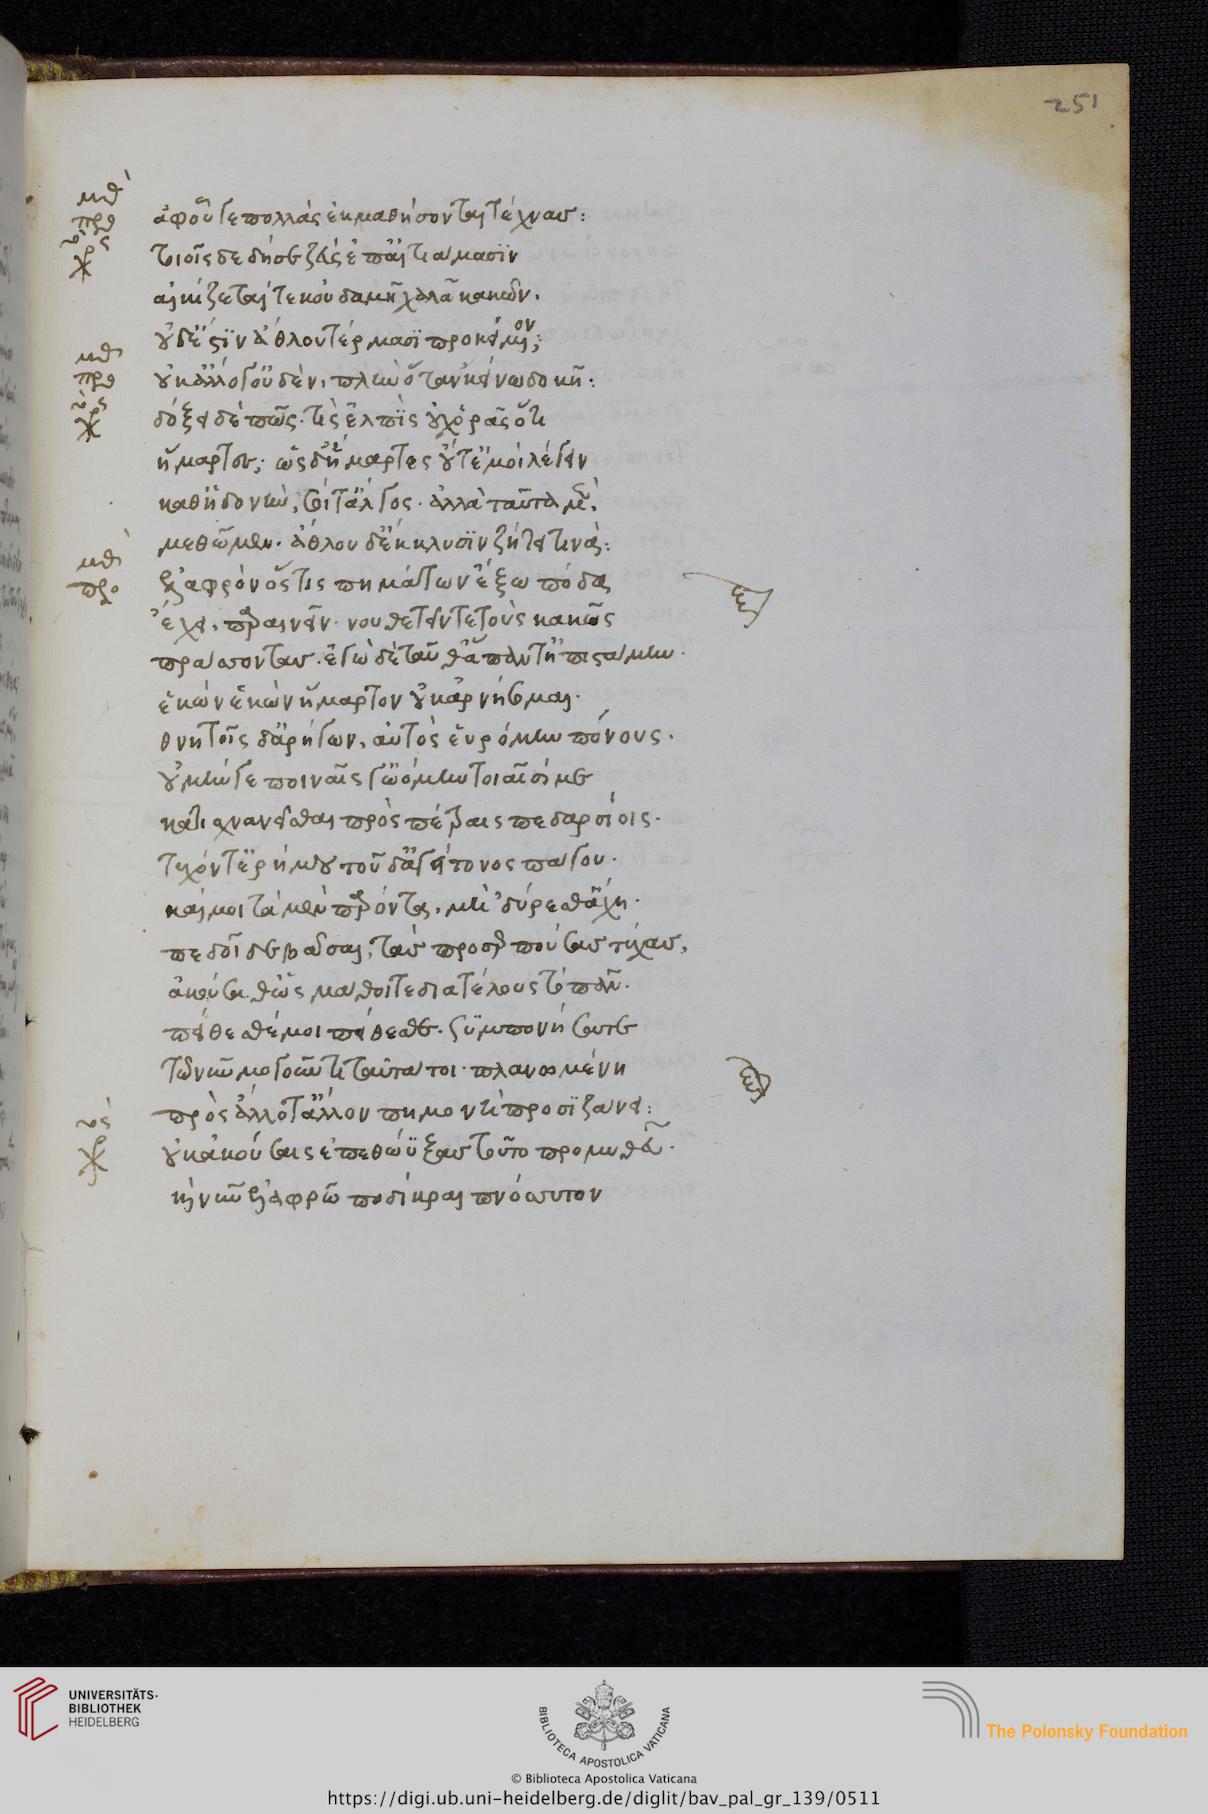 251
ἀφ' οὗ γε πολλὰς ἐκμαθήσονται τέχνας:
τοιοῖσδε δή σε ζεὺς ἐπ' αἰτιάμασιν
αἰκίζεταί τε κοὐδαμῆ χαλᾶ κακῶν.
οὐδ' ἔστιν ἄθλου τέρμα σοι προκείμενον;
οὐκ ἄλλο γ' οὐδὲν, πλὴν ὅταν κείνω δοκῆ:
δόξει δὲ πῶς. τίς ἐλπὶς οὐχ ὁρᾶς ὅτι
ἥμαρτες; ὡς δ' ἥμαρτες οὔτ' ἐμοὶ λέγειν
καθ' ἡδονὴν, σοί τ' ἄλγος. ἀλλὰ ταῦτα μὲν
μεθῶμεν. ἄθλου δ' ἔκλυσιν ζήτει τινά:
ἐλαφρὸν ὅστις πημάτων ἔξω πόδα
ἔχει, παραινεῖν νουθετεῖν τε τοὺς κακῶς
πράσσοντας. ἐγὼ δὲ ταῦθ' ἅπαντ' ἠπιστάμην.
ἑκὼν ἑκὼν ἥμαρτον οὐκ ἀρνήσομαι.
θνητοῖς δ' ἀρήγων, αὐτὸς εὑρόμην πόνους.
οὐ μήν γε ποιναῖς γ' ᾠόμην τοίαισί με
κατισχνανεῖσθαι πρὸς πέτραις πεδαρσίοις.
τυχόντ' ἐρήμου τοῦδ' ἀγείτονος πάγου.
καί μοι τὰ μὲν παρόντα, μὴ δύρεσθ' ἄχη.
πεδοῖ δὲ βᾶσαι, τὰς προσερπούσας τύχας,
ἀκούσαθ' ὡς μάθοιτε διὰ τέλους τὸ πᾶν.
πείθεσθέ μοι πείθεσθε. ξυμπονήσατε
τῶ νῦν μογοῦντι ταῦτά τοι πλανωμένη
πρὸς ἄλλοτ' ἄλλον πημονὴ προσιζάνει:
οὐκ ἀκούσαις ἐπεθώυξας τοῦτο προμηθεῦ.
καὶ νῦν ἐλαφρῶ ποδὶ κραιπνόσυτον
UNIVERSITÄTS-
BIBLIOTHEK
HEIDELBERG
BIBLIOTECA APOSTOLICA VATICANA
The Polonsky Foundation
© Biblioteca Apostolica Vaticana
https://digi.ub.uni-heidelberg.de/diglit/bav_pal_gr_139/0511